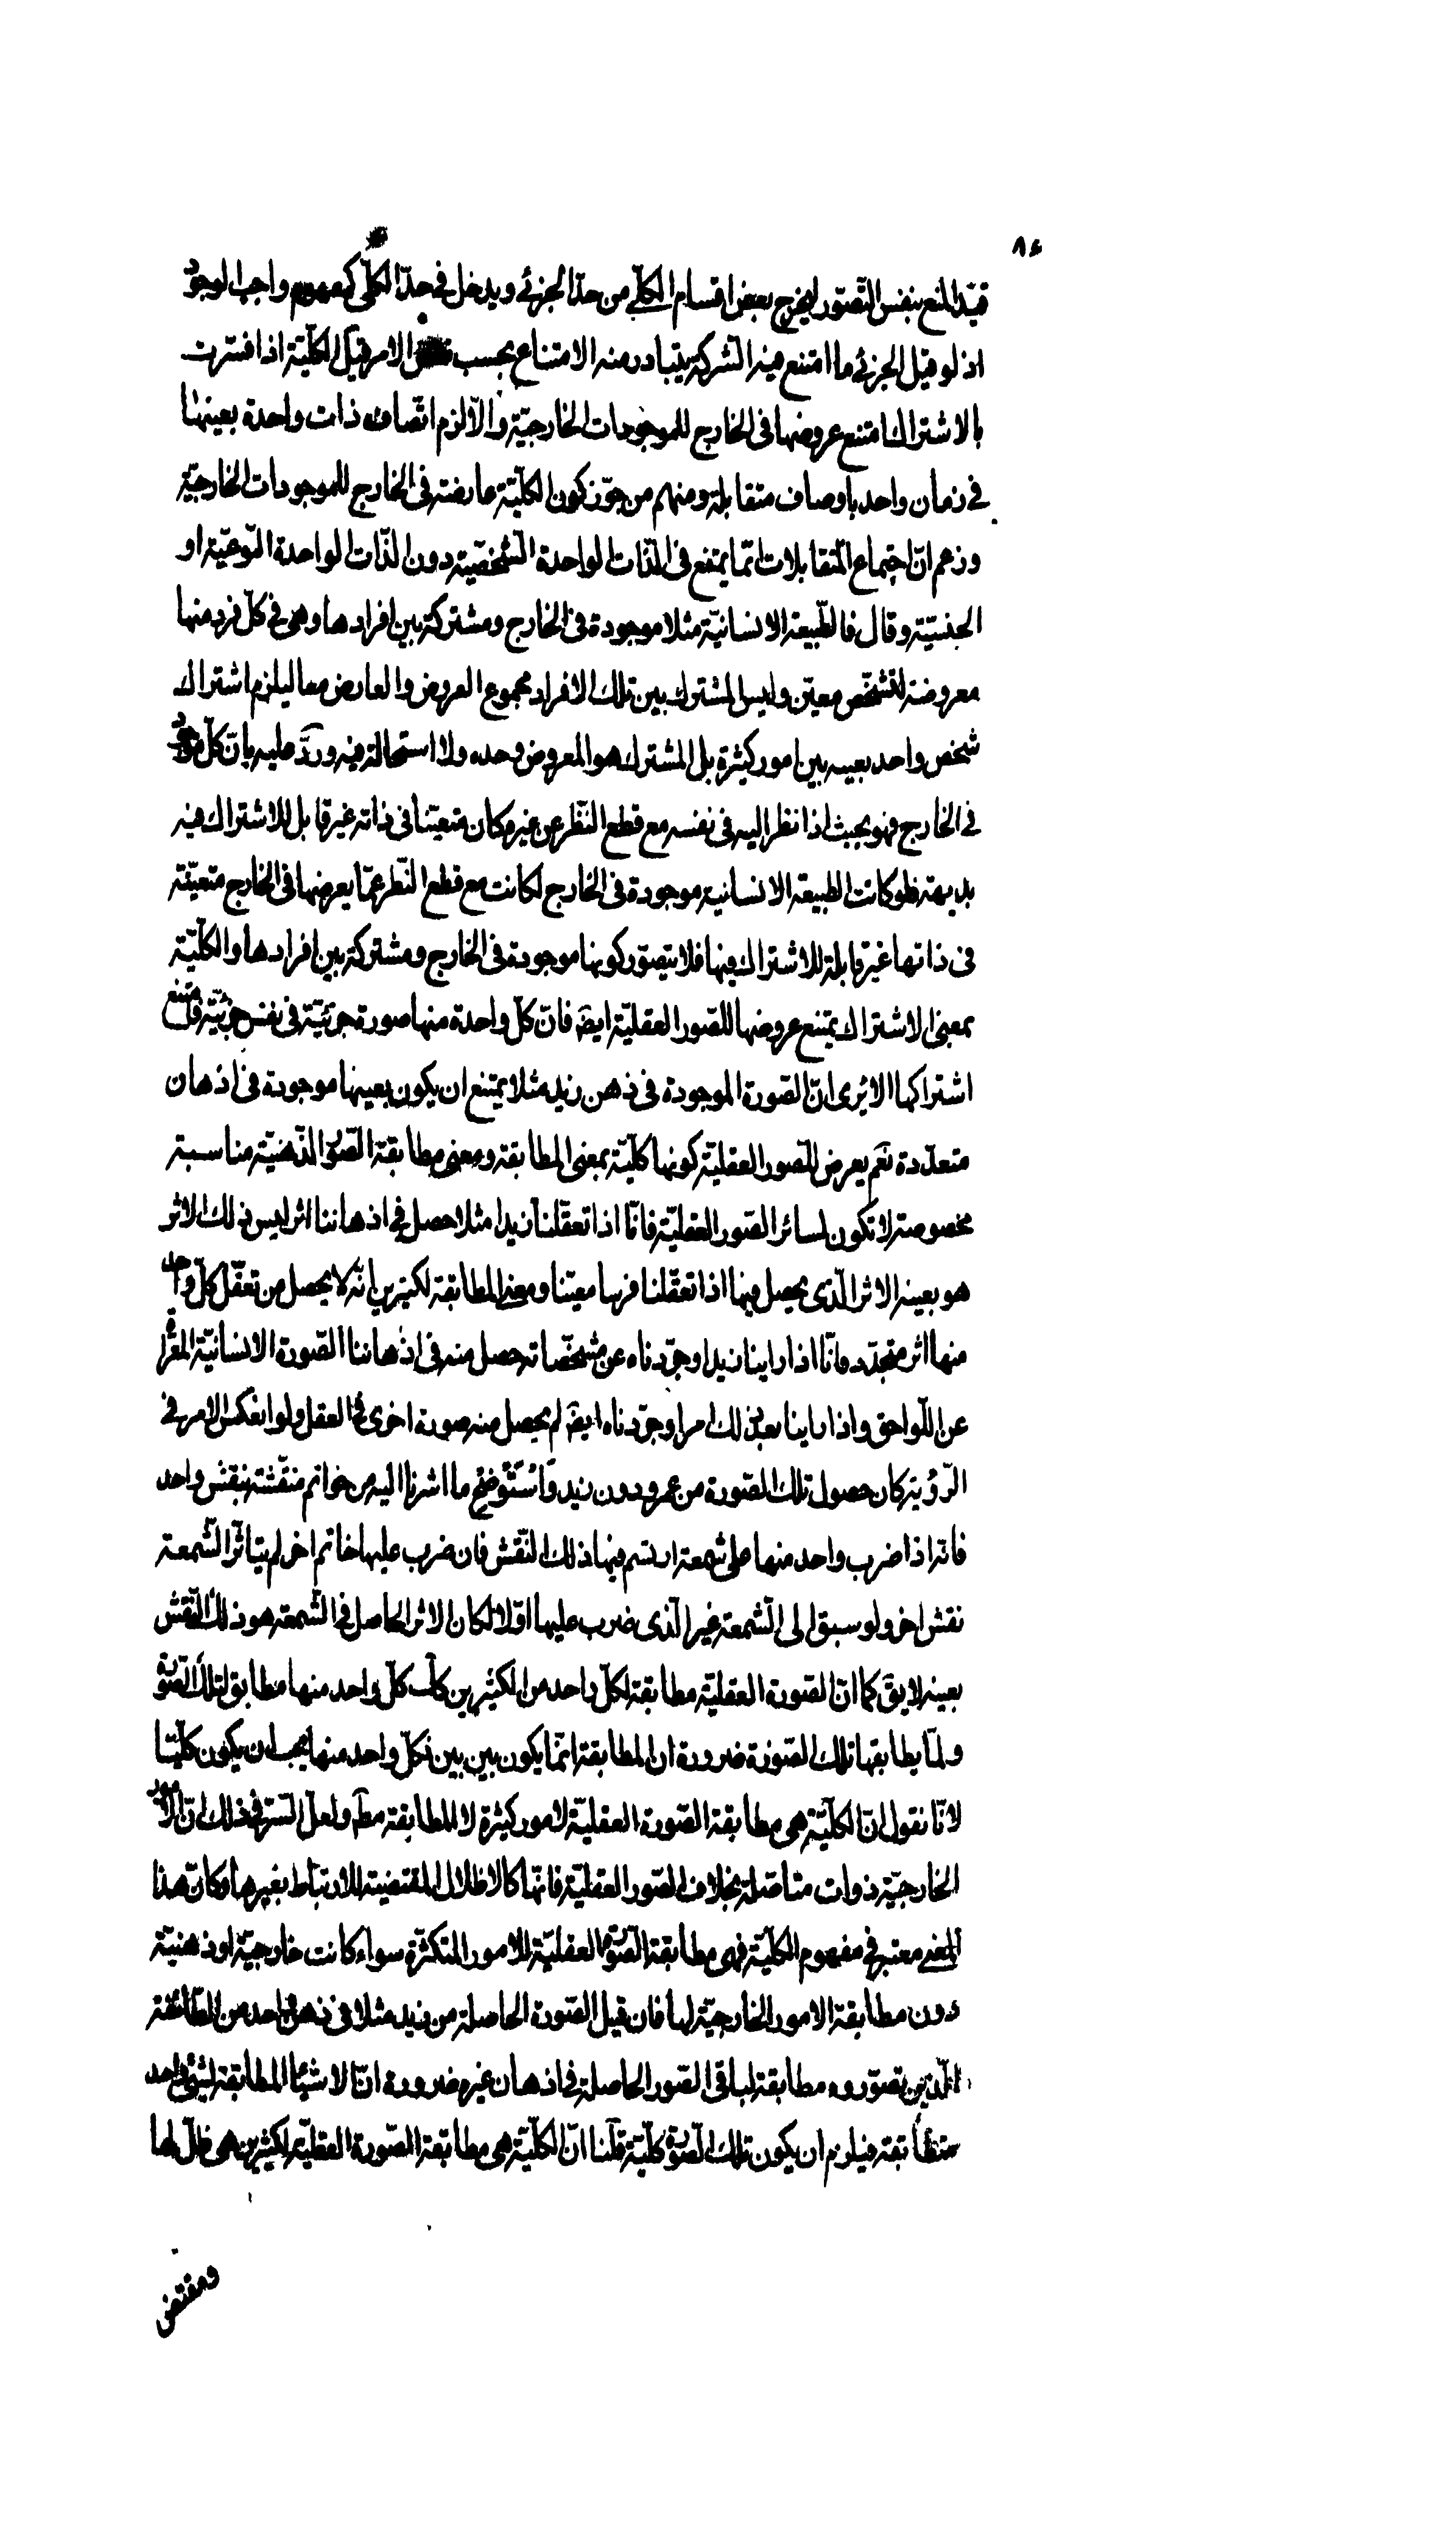 ٨٤
قيد المنع بنفس التّصوّر ليخرج بعض اقسام الكلّي من حدّ الجزئي ويدخل في حدّ الكلّي كمفهوم واجب الوجود
اذ لو قيل الجزئي ما امتنع فيه الشركة يتبادر منه الامتناع بحسب نفس الامر قيل الكلّيّة اذا فسّرت
بالاشتراك امتنع عروضها في الخارج للموجودات الخارجيّة والّا لزم اتّصاف ذات واحدة بعينها
في زمان واحد باوصاف متقابلة ومنهم من جوّز كون الكلّيّة عارضة في الخارج للموجودات الخارجيّة
وزعم انّ اجتماع المتقابلات انّما يمتنع في الذّات الواحدة الشّخصيّة دون الذّات الواحدة النّوعيّة او
الجنسيّة وقال فالطّبيعة الانسانيّة مثلا موجودة في الخارج ومشتركة بين افرادها وهي في كلّ فرد منها
معروضة لتشخّص معيّن وليس المشترك بين تلك الافراد مجموع المعروض والعارض معا ليلزم اشتراك
شخص واحد بعينه بين امور كثيرة بل المشترك هو المعروض وحده ولا استحالة فيه وردّ عليه بانّ كلّ موجود
في الخارج فهو بحيث اذا نظر اليه في نفسه مع قطع النّظر عن غيره كان متعيّنا في ذاته غير قابل للاشتراك فيه
بديهة فلو كانت الطبيعة الانسانية موجودة في الخارج لكانت مع قطع النّظر عمّا يعرضها في الخارج متعيّنة
في ذاتها غير قابلة للاشتراك فيها فلا يتصوّر كونها موجودة في الخارج ومشتركة بين افرادها والكلّيّة
بمعنى الاشتراك يمتنع عروضها للصّور العقليّة ايضا فانّ كلّ واحدة منها صورة جزئيّة في نفس جزئيّة فامتنع
اشتراكها الا يرى انّ الصّورة الموجودة في ذهن زيد مثلا يمتنع ان يكون بعينها موجودة في اذهان
متعدّدة نعم يعرض للصّور العقليّة كونها كلّيّة بمعنى المطابقة ومعنى مطابقة الصّورة الذّهنيّة مناسبة
مخصوصة لا تكون لسائر الصّور العقليّة فانّا اذا تعقّلنا زيدا مثلا حصل في اذهاننا اثر ليس ذلك الاثر
هو بعينه الاثر الّذي يحصل فيها اذا تعقّلنا فرسا معيّنا ومعنى المطابقة لكثيرين انّه لا يحصل من تعقّل كلّ واحد
منها اثر متجدّد فانّا اذا راينا زيدا وجرّدناه عن مشخّصاته حصل منه في اذهاننا الصّورة الانسانيّة المعرّاة
عن اللّواحق واذا راينا بعد ذلك عمرا وجرّدناه ايضا لم يحصل منه صورة اخرى في العقل ولو انعكس الامر في
الرّؤية كان حصول تلك الصّورة من عمرو دون زيد واستوضح ما اشرنا اليه من خواتم منقّشة بنقش واحد
فانّه اذا ضرب واحد منها على شمعة ارتسم فيها ذلك النّقش فان ضرب عليها خاتم اخر لم يتاثّر الشّمعة
نقش اخر ولو سبق الى الشّمعة غير الّذي ضرب عليها اوّلا لكان الاثر الحاصل في الشّمعة هو ذلك النّقش
بعينه لا يق كما انّ الصّورة العقليّة مطابقة لكلّ واحد من الكثيرين كك كلّ واحد منها مطابق لتلك الصّورة
ولما يطابقها تلك الصّورة ضرورة ان المطابقة انّما يكون بين بين فكلّ واحد منها يجب ان يكون كلّيّا
لانّا نقول انّ الكلّيّة هي مطابقة الصّورة العقليّة لامور كثيرة لا المطابقة مطلقا ولعلّ السّرّ في ذلك انّ الامور
الخارجيّة ذوات متاصّلة بخلاف الصّور العقليّة فانّها كالاظلال المقتضية للارتباط بغيرها وكانّ هذا
المعنى معتبر في مفهوم الكلّيّة فهي مطابقة الصّورة العقليّة للامور المتكثّرة سواء كانت خارجيّة او ذهنيّة
دون مطابقة الامور الخارجيّة لها فان قيل الصّورة الحاصلة من زيد مثلا في ذهن واحد من الطّائفة
الّذين تصوّروه مطابقة لباقي الصّور الحاصلة في اذهان غيره ضرورة انّ الاشياء المطابقة لشيء واحد
متطابقة فيلزم ان يكون تلك الصّورة كلّيّة قلنا انّ الكلّيّة هي مطابقة الصّورة العقليّة لكثيرين هي ظلّ لها
ومقتض